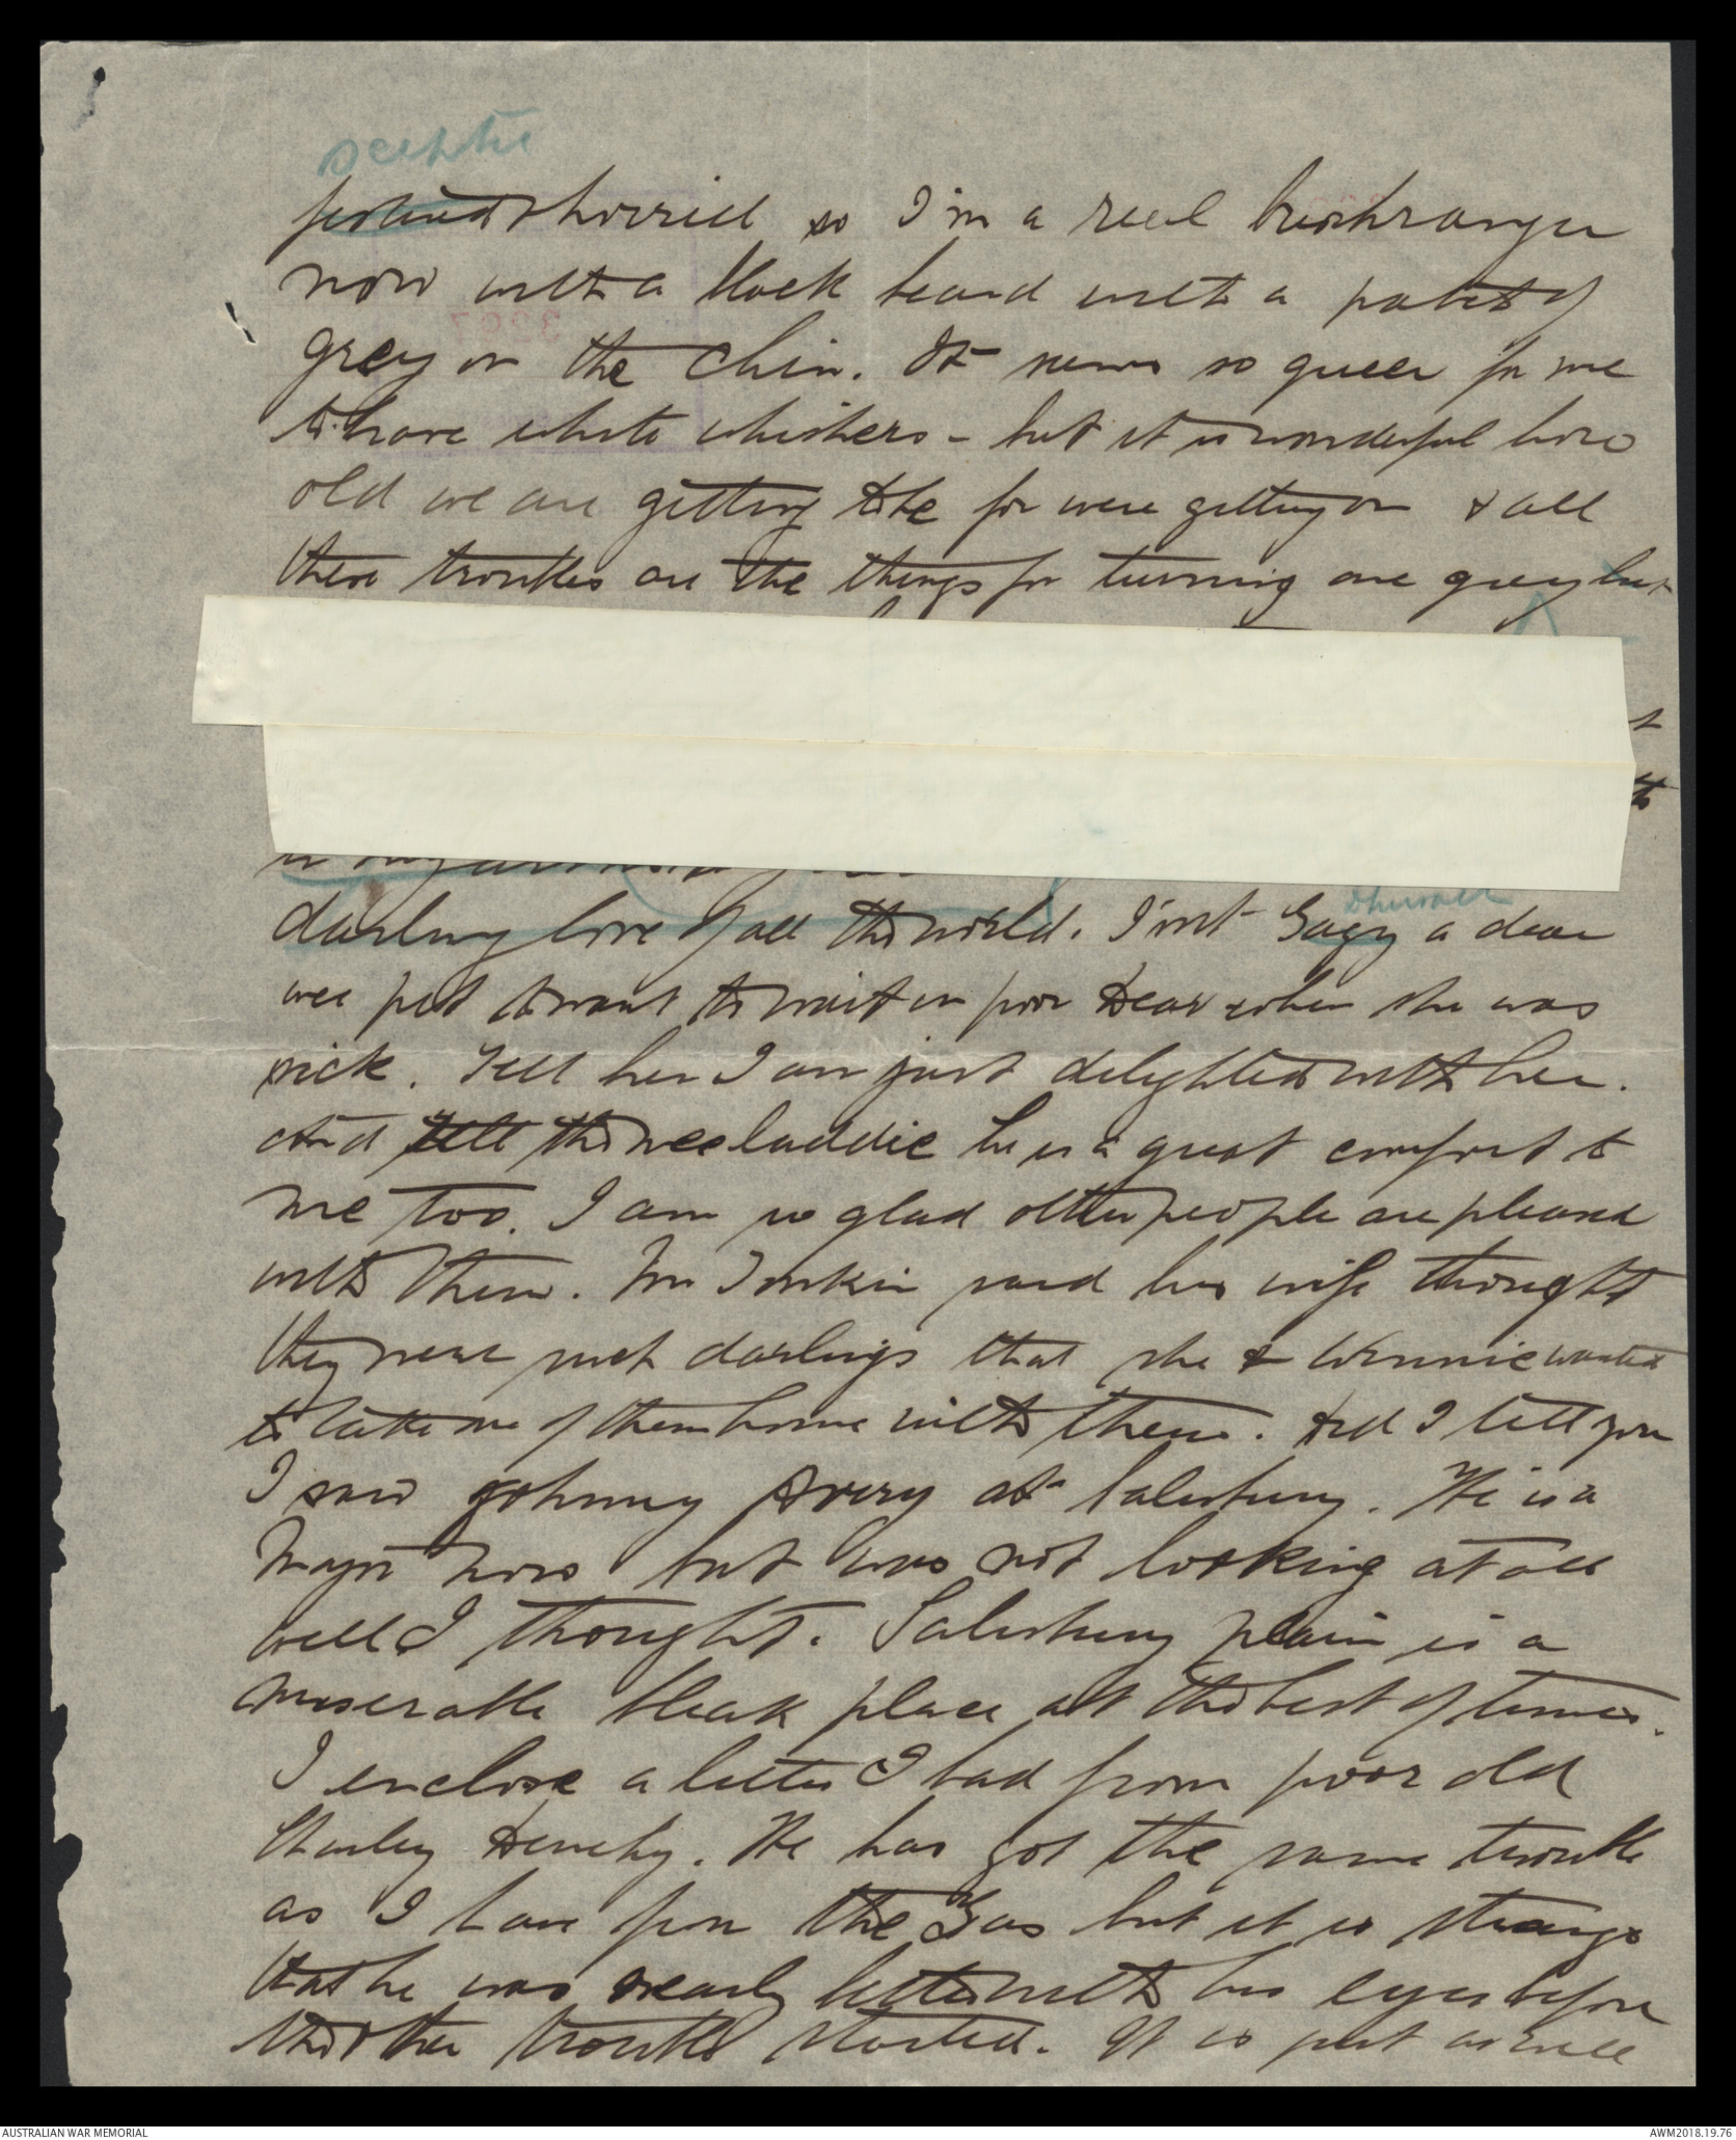 sceptic
& horrid so I'm a real bushranger
now with a black beard with a patch of
grey on the chin. It seems so queer for me
to have white whiskers - but it is wonderful how
old we are getting for were getting on & all
these troubles are the things for turning one grey but
t
to
darling love of all the world. Isn't Gagy a dear
wee pet to want to wait on poor Dear when she was
sick. Tell her I am just delighted with her.
And tell the wee laddie he is a great comfort to
me too. I am so glad other people are pleased
with them. Mr said his wife thought
they were such darlings that she & Winnie wanted
to take one of them home with them. Did I tell you
I saw Johnny Avery at Salisbury. He is a
Major now but was not looking at all
well I thought. Salisbury plain is a
miserable bleak place at the best of times.
I enclose a letter I had from poor old
Charley Denehy. He has got the same trouble
as I have from the Gas but it is strange
that he was nearly better with his eyes before
the other trouble started. It is just as well
AUSTRALIAN WAR MEMORIAL
AWM2018.19.76